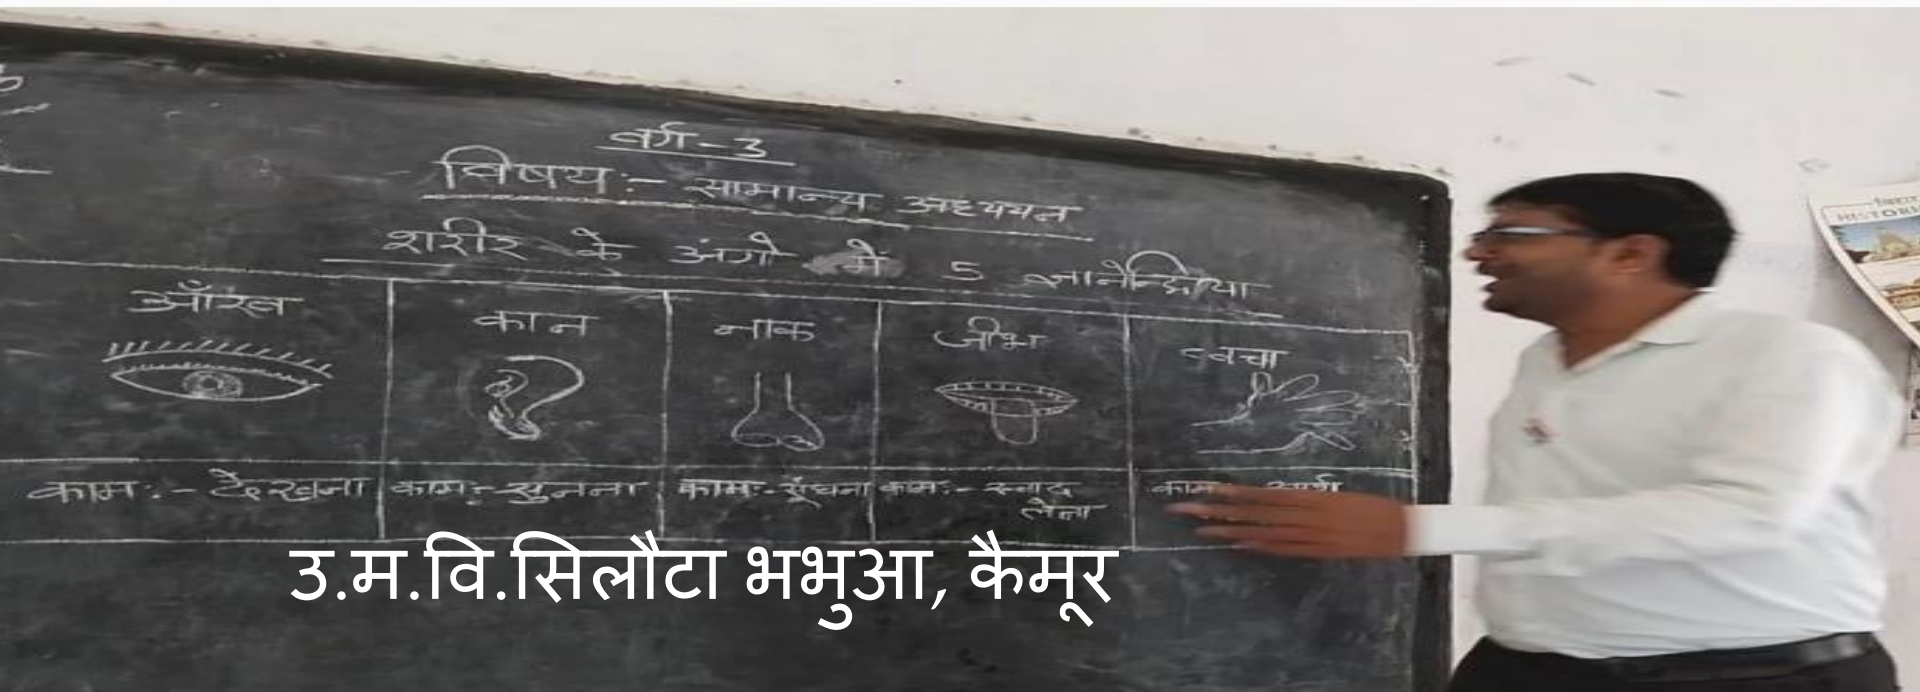 वर्ग-3
विषय:- सामान्य अध्ययन
शरीर के अंगो में 5 ज्ञानेन्द्रिया
आँख कान नाक जीभ त्वचा
काम:- देखना काम:- सुनना काम:- सूंघना काम:- स्वाद लेना काम
उ.म.वि.सिलौटा भभुआ, कैमूर
HISTORI